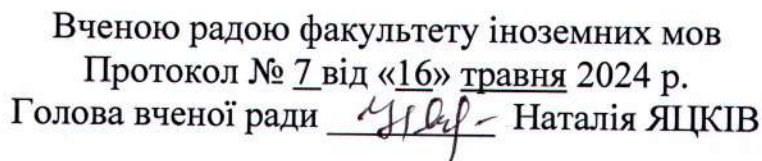 Вченою радою факультету іноземних мов
Протокол № 7 від «16» травня 2024 р.
Голова вченої ради ________ Наталія ЯЦКІВ